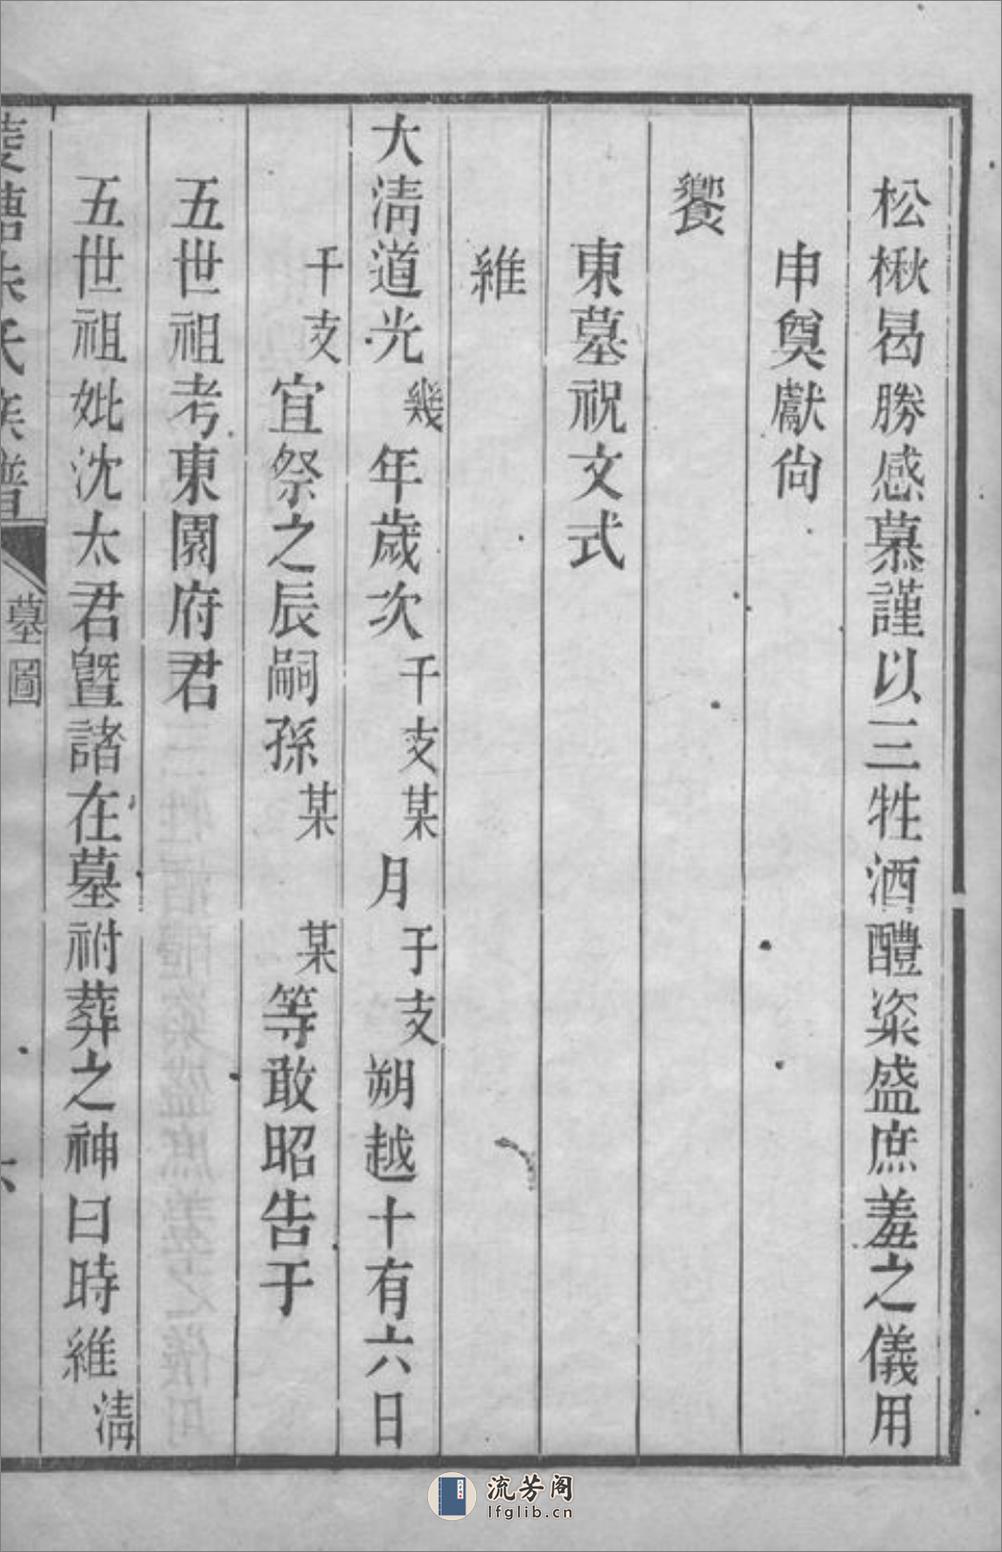 松楸曷勝感慕謹以三牲酒醴粢盛庶羞之儀用
申奠獻尙
饗
東墓祝文式
維
大淸道光幾年歲次干支某月干支朔越十有六日
干支宜祭之辰嗣孫某某等敢昭告于
五世祖考東園府君
五世祖妣沈太君曁諸在墓祔葬之神曰時維淸
氏族譜
墓圖
六
流芳阁
lfglib.cn